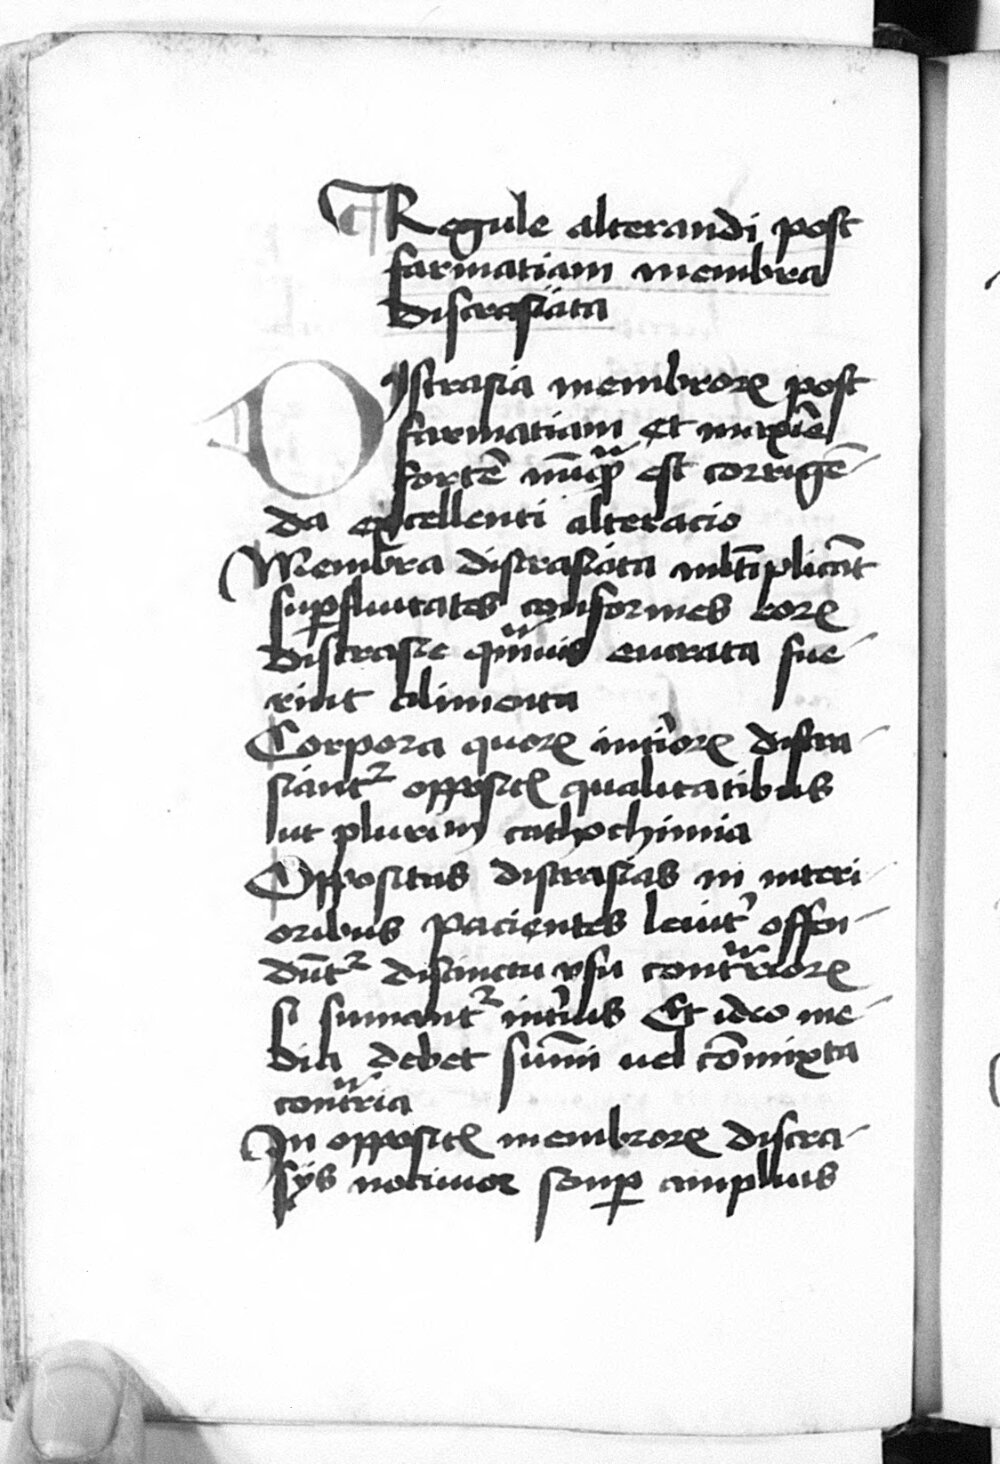 Regule alterandi post
farmatiam membra
discrasiata
Discrasia membroꝝ post
farmatiam et maxīe
fortē nūqͣꝫ est corrigē
da excellenti alteracio
Membra discrasiata mĺtiplicāt
suꝑfluitates conformes eoꝝ
discrasie qͣmuis eucrata fue
rint alimenta
Corpora quoꝝ int̓ioꝝ discra
siantᷣ oppositꝭ qualitatibus
ut plurimū cathochimia
Oppositas discrasias in interi
oribus pacientes leuit̓ offen
dūtᷣ distinctu vsu contͣrioꝝ
si sumantᷣ int̓ius Et ideo me
dia debet sūmi uel cōmixta
contͣria
In oppositꝭ membroꝝ discra
sijs nociuor semꝑ amplius